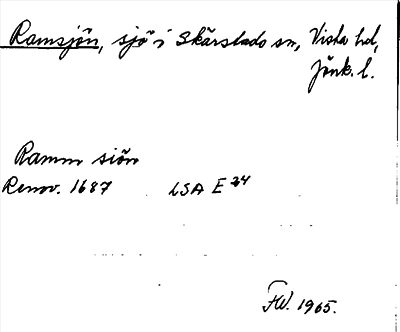 Ramsjön, sjö i Skärstads sn, Vista hd,
Jönk. l.
Ramm siön
Renov. 1687 LSA E 24
FW. 1965.